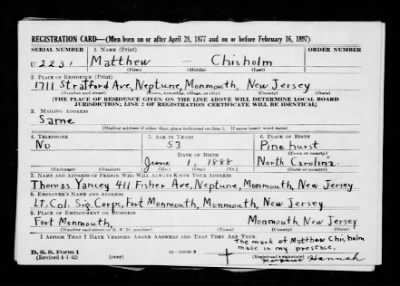 REGISTRATION CARD—(Men born on or after April 28, 1877 and on or before February 16, 1897)
SERIAL NUMBER 1. NAME (Print) ORDER NUMBER
U 2231 Matthew — Chisholm
(First) (Middle) (Last)
2. PLACE OF RESIDENCE (Print)
1711 Stratford Ave, Neptune, Monmouth, New Jersey
(Number and street) (Town, township, village, or city) (County) (State)
[THE PLACE OF RESIDENCE GIVEN ON THE LINE ABOVE WILL DETERMINE LOCAL BOARD
JURISDICTION; LINE 2 OF REGISTRATION CERTIFICATE WILL BE IDENTICAL]
3. MAILING ADDRESS
Same
[Mailing address if other than place indicated on line 2. If same insert word same]
4. TELEPHONE 5. AGE IN YEARS 6. PLACE OF BIRTH
No 53 Pinehurst
DATE OF BIRTH (Town or county)
June 1, 1888 North Carolina
(Exchange) (Number) (Mo.) (Day) (Yr.) (State or country)
7. NAME AND ADDRESS OF PERSON WHO WILL ALWAYS KNOW YOUR ADDRESS
Thomas Yancey 411 Fisher Ave, Neptune, Monmouth, New Jersey
8. EMPLOYER'S NAME AND ADDRESS
Lt. Col. Sig. Corps, Fort Monmouth, Monmouth, New Jersey
9. PLACE OF EMPLOYMENT OR BUSINESS
Fort Monmouth Monmouth, New Jersey
(Number and street or R. F. D. number) (Town) (County) (State)
I AFFIRM THAT I HAVE VERIFIED ABOVE ANSWERS AND THAT THEY ARE TRUE.
The mark of Matthew Chisholm
made in my presence.
D. S. S. Form 1
(Revised 4-1-42) (over) (Registrant's signature)
Hannah